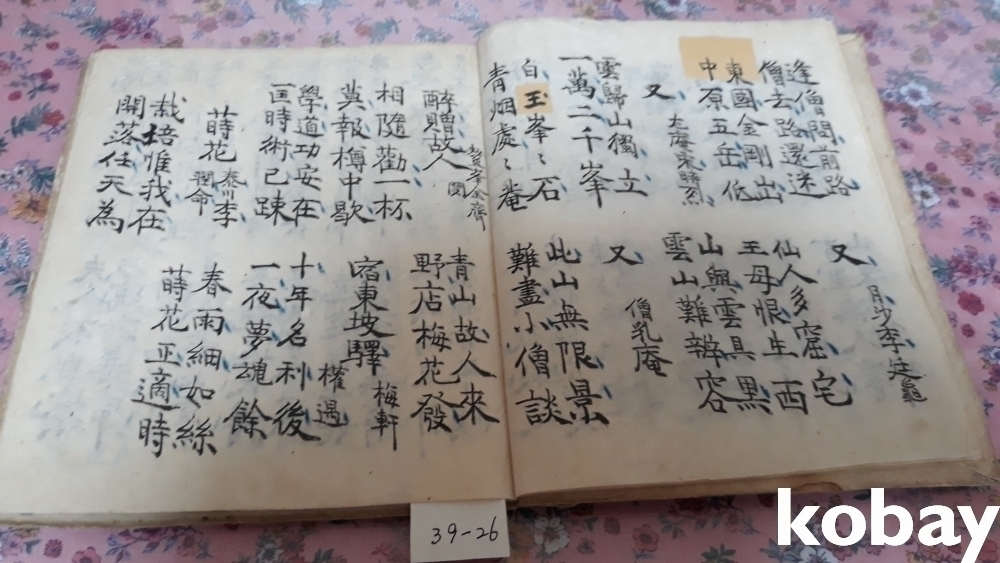 逢僧問前路
僧去路還迷
又
月沙李廷龜
東國金剛出
中原五岳低
仙人多窟宅
王母恨生西
又
尤庵宋時烈
山與雲具黑
雲山難辨容
雲歸山獨立
一萬二千峯
又
僧乳庵
白玉峯〻石
青烟處〻菴
此山無限景
難盡小僧談
醉贈故人
閔齊
青山故人來
野店梅花發
相隨勸一杯
莫報樽中歇
宿東坡驛
梅軒
權遇
學道功安在
匡時術已踈
十年名利後
一夜夢魂餘
蒔花
李
命
春雨細如絲
蒔花正適時
栽培惟我在
開落任天為
39-26
kobay